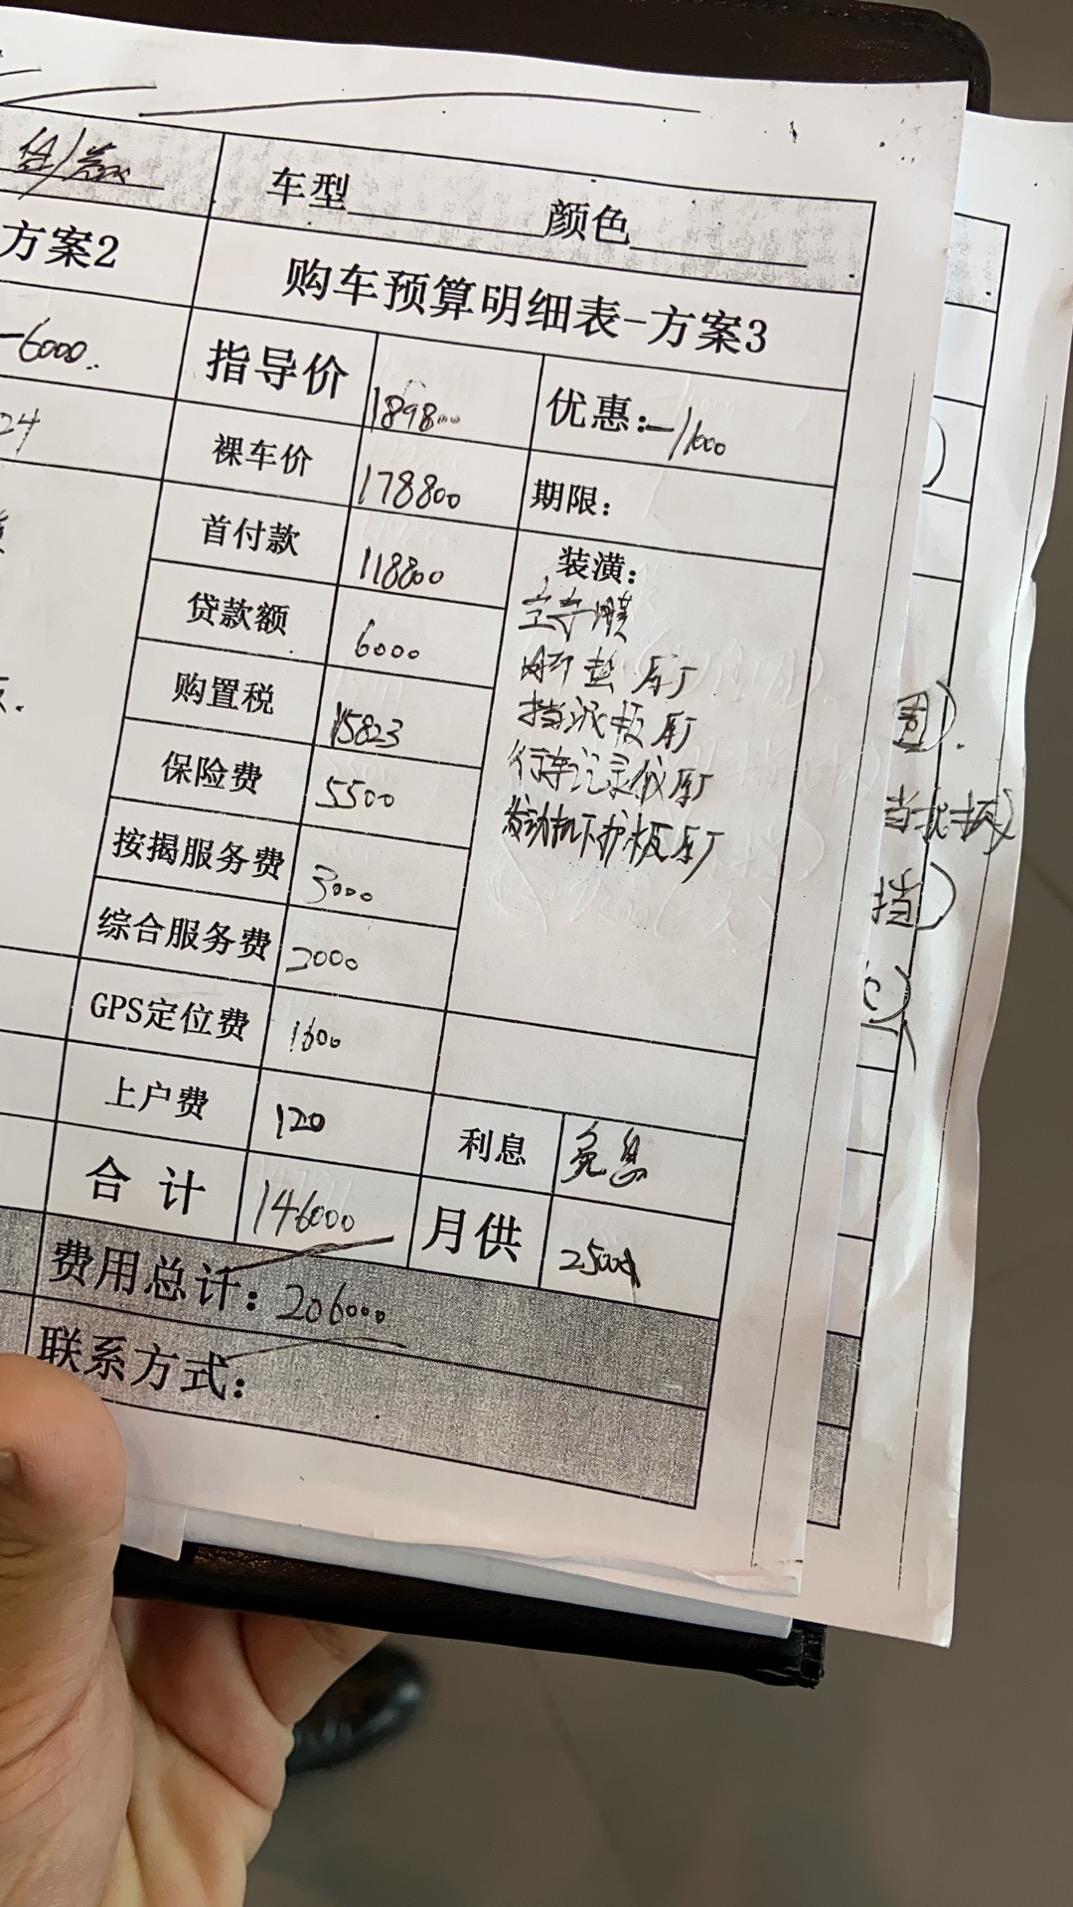 车型 颜色
方案2
购车预算明细表-方案3
-6000.
指导价 189800 优惠:-11000
24
裸车价 178800 期限:
首付款 118800 装潢:
全车膜
贷款额 6000
脚垫 原厂
购置税 15823
挡泥板 原厂
保险费 5500
行车记录仪原厂
发动机下护板原厂
按揭服务费 3000
综合服务费 2000
GPS定位费 1600
上户费 120 利息 免息
合 计 146000 月供 2500
费用总计: 206000
联系方式:
挡)